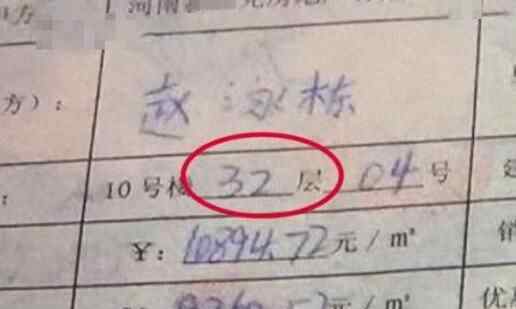 方
河南
方）：
赵泳栋
：
10号楼 32 层 04 号
￥：10894.72元/m²
销
元/m²
优